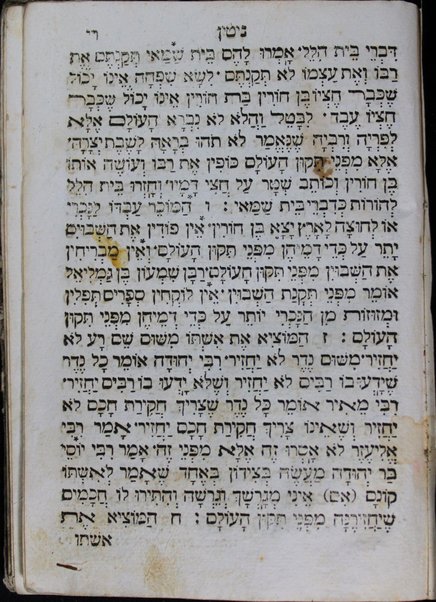 גיטין
דִּבְרֵי בֵּית הִלֵּל׳ אָמְרוּ לָהֶם בֵּית שַׁמַּאי תִּקַּנְתֶּם אֶת
רַבּוֹ וְאֶת עַצְמוֹ לֹא תִּקַּנְתֶּם׳ לִשָּׂא שִׁפְחָה אֵינוֹ יָכוֹל
שֶׁכְּבָר חֶצְיוֹ בֶּן חוֹרִין בַּת חוֹרִין אֵינוֹ יָכוֹל שֶׁכְּבָר
חֶצְיוֹ עֶבֶד׳ לִבָּטֵל וַהֲלֹא לֹא נִבְרָא הָעוֹלָם אֶלָּא
לִפְרִיָּה וְרִבְיָה שֶׁנֶּאֱמַר לֹא תֹהוּ בְרָאָהּ לָשֶׁבֶת יְצָרָהּ׳
אֶלָּא מִפְּנֵי תִּקּוּן הָעוֹלָם כּוֹפִין אֶת רַבּוֹ וְעוֹשֶׂה אוֹתוֹ
בֶּן חוֹרִין וְכוֹתֵב שְׁטָר עַל חֲצִי דָמָיו׳ וְחָזְרוּ בֵּית הִלֵּל
לְהוֹרוֹת כְּדִבְרֵי בֵּית שַׁמַּאי׃ ו הַמּוֹכֵר עַבְדּוֹ לַנָּכְרִי
אוֹ לְחוּצָה לָאָרֶץ יָצָא בֶּן חוֹרִין׳ אֵין פּוֹדִין אֶת הַשְּׁבוּיִם
יָתֵר עַל כְּדֵי דְמֵיהֶן מִפְּנֵי תִּקּוּן הָעוֹלָם׳ וְאֵין מַבְרִיחִין
אֶת הַשְּׁבוּיִן מִפְּנֵי תִּקּוּן הָעוֹלָם׳ רַבָּן שִׁמְעוֹן בֶּן גַּמְלִיאֵל
אוֹמֵר מִפְּנֵי תַּקָּנַת הַשְּׁבוּיִן׳ אֵין לוֹקְחִין סְפָרִים תְּפִלִּין
וּמְזוּזוֹת מִן הַנָּכְרִי יוֹתֵר עַל כְּדֵי דְמֵיהֶן מִפְּנֵי תִּקּוּן
הָעוֹלָם׃ ז הַמּוֹצִיא אֶת אִשְׁתּוֹ מִשּׁוּם שֵׁם רַע לֹא
יַחֲזִיר׳ מִשּׁוּם נֶדֶר לֹא יַחֲזִיר׳ רַבִּי יְהוּדָה אוֹמֵר כָּל נֶדֶר
שֶׁיָּדְעוּ בוֹ רַבִּים לֹא יַחֲזִיר וְשֶׁלֹּא יָדְעוּ בוֹ רַבִּים יַחֲזִיר׳
רַבִּי מֵאִיר אוֹמֵר כָּל נֶדֶר שֶׁצָּרִיךְ חֲקִירַת חָכָם לֹא
יַחֲזִיר וְשֶׁאֵינוֹ צָרִיךְ חֲקִירַת חָכָם יַחֲזִיר׳ אָמַר רַבִּי
אֱלִיעֶזֶר לֹא אָסְרוּ זֶה אֶלָּא מִפְּנֵי זֶה׳ אָמַר רַבִּי יוֹסֵי
בַּר יְהוּדָה מַעֲשֶׂה בְּצִידוֹן בְּאֶחָד שֶׁאָמַר לְאִשְׁתּוֹ
קוֹנָם (אִם) אֵינִי מְגָרְשֵׁךְ וְגֵרְשָׁהּ וְהִתִּירוּ לוֹ חֲכָמִים
שֶׁיַּחֲזִירֶנָּה מִפְּנֵי תִּקּוּן הָעוֹלָם׃ ח הַמּוֹצִיא אֶת
אשתו